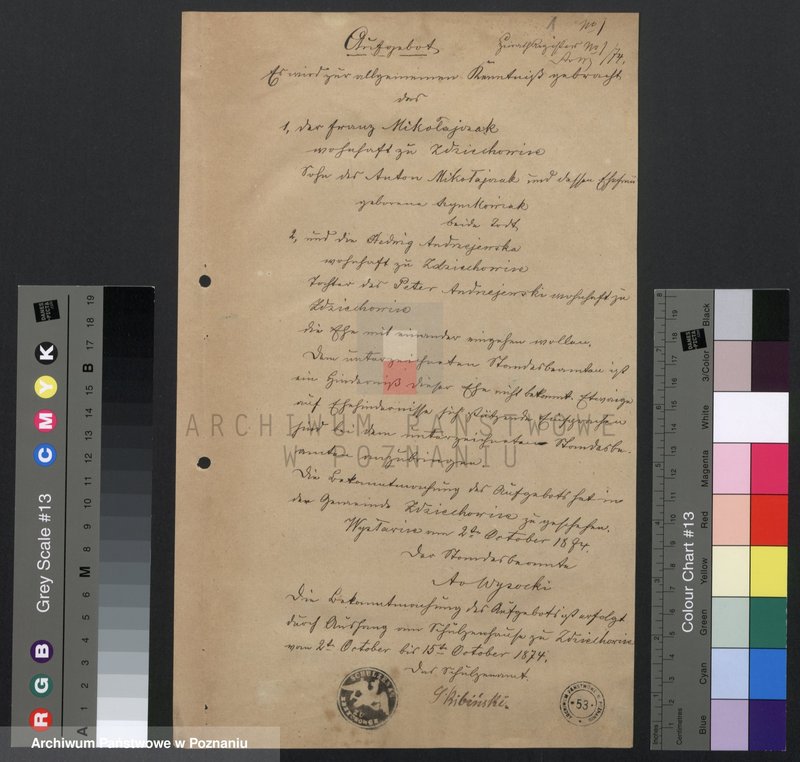 No 1
Aufgebot
Es wird zur allgemeinen Kenntniß gebracht
das
1, der Franz Mikołajczak
wohnhaft zu Zdziechowice
Sohn des Anton Mikołajczak und dessen Ehefrau
geborene
beide Todt,
2, und die Hedwig Andrzejewska
wohnhaft zu Zdziechowice
Tochter des Peter Andrzejewski wohnhaft zu
Zdziechowice
die Ehe mit einander eingehen wollen.
Dem unterzeichneten Standesbeamten ist
ein Hinderniß dieser Ehe nicht bekannt. Etwaige
auf Ehehindernisse sich stützende Einsprachen
sind bei dem unterzeichneten Standesbe-
amten anzubringen.
Die Bekanntmachung des Aufgebots hat in
der Gemeinde Zdziechowice zu geschehen.
am 2ten October 1874.
Der Standesbeamte
Wysocki
Die Bekanntmachung des Aufgebots ist erfolgt
durch Aushang am Schulzenhause zu Zdziechowice
vom 2ten October bis 15ten October 1874.
Das Schulzenamt.
Skibiński.
ARCHIWUM PAŃSTWOWE
W POZNANIU
53
Archiwum Państwowe w Poznaniu
Grey Scale #13
R G B C M Y K
A 1 2 3 4 5 6 M 8 9 10 11 12 13 14 15 B 17 18 19
Colour Chart #13
Blue Cyan Green Yellow Red Magenta White 3/Color Black
Inches
Centimetres